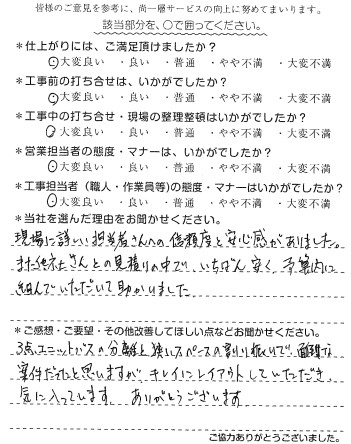 皆様のご意見を参考に、尚一層サービスの向上に努めてまいります。
該当部分を、○で囲ってください。
*仕上がりには、ご満足頂けましたか？
・大変良い ・良い ・普通 ・やや不満 ・大変不満
*工事前の打ち合せは、いかがでしたか？
・大変良い ・良い ・普通 ・やや不満 ・大変不満
*工事中の打ち合せ・現場の整理整頓はいかがでしたか？
・大変良い ・良い ・普通 ・やや不満 ・大変不満
*営業担当者の態度・マナーは、いかがでしたか？
・大変良い ・良い ・普通 ・やや不満 ・大変不満
*工事担当者（職人・作業員等）の態度・マナーはいかがでしたか？
・大変良い ・良い ・普通 ・やや不満 ・大変不満
*当社を選んだ理由をお聞かせください。
現場に詳しい担当者さんへの信頼度と安心感がありました。
また他社さんとの見積りの中で、いちばん安く、予算内に
組んでいただいて助かりました
*ご感想・ご要望・その他改善してほしい点などお聞かせください。
3点ユニットバスの分離と狭いスペースの割り振りで、面倒な
案件だったと思いますが、キレイにレイアウトしていただき、
気に入っています ありがとうございます
ご協力ありがとうございました。